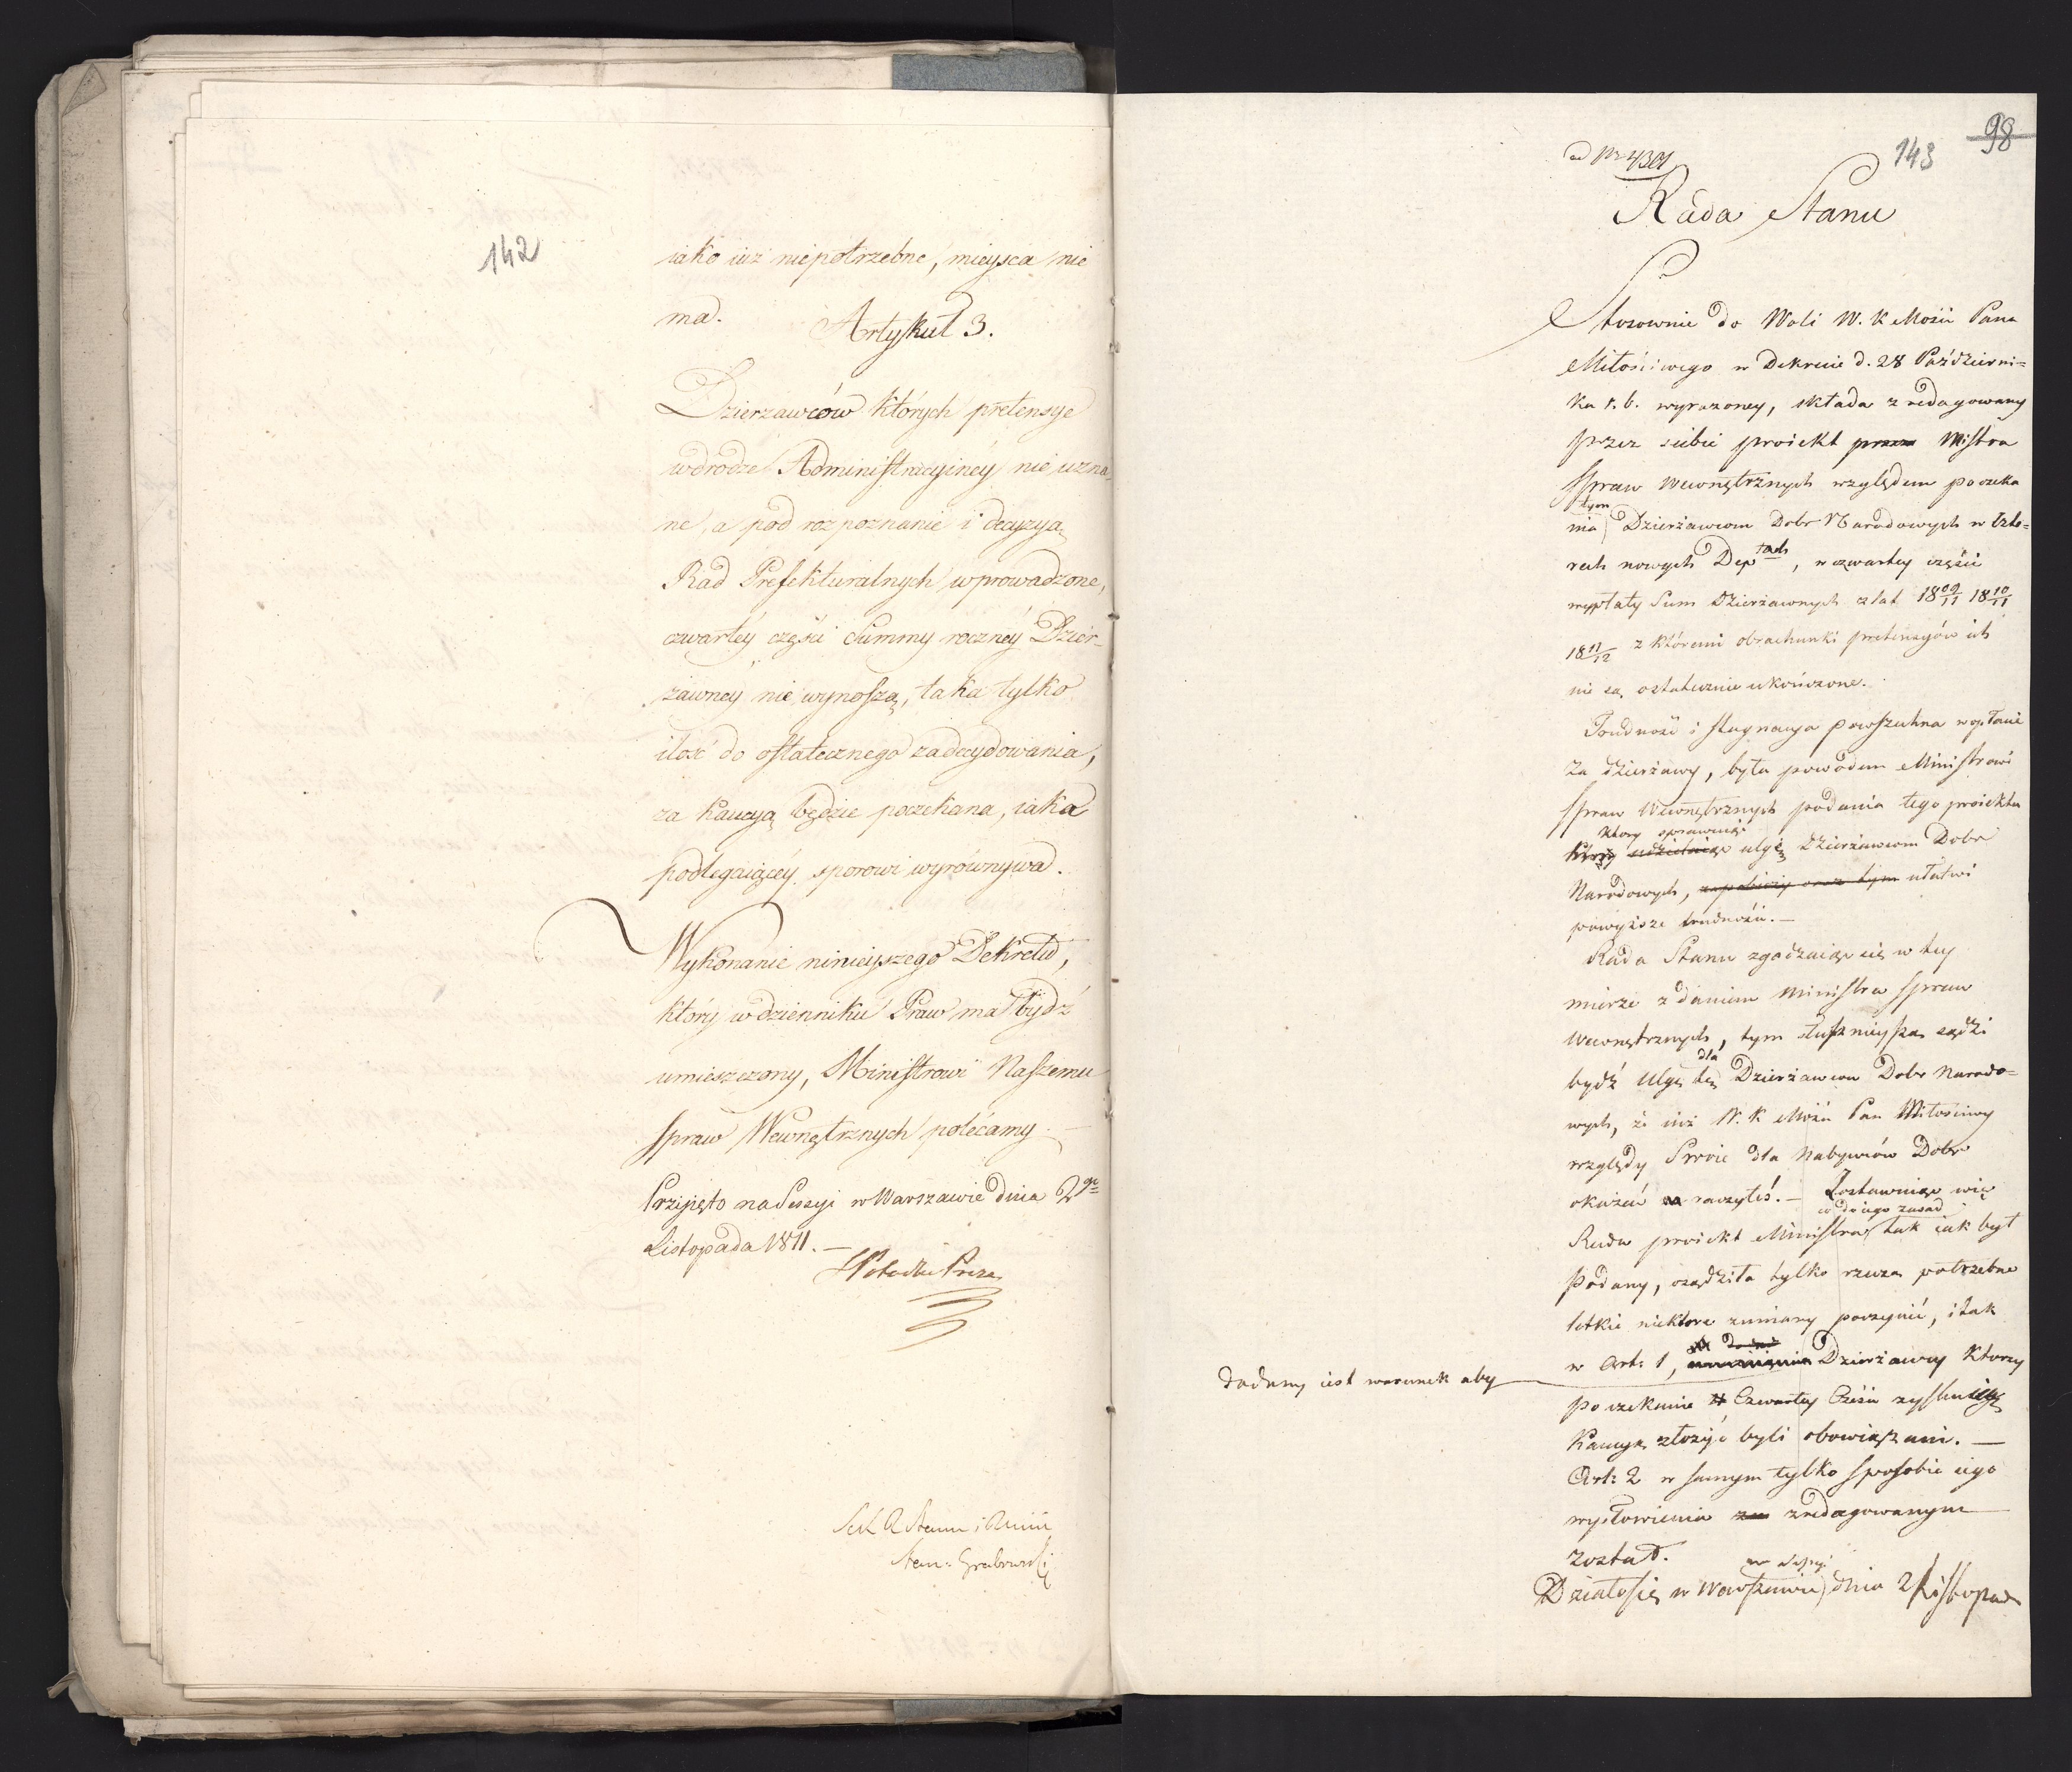 142
iako iuż niepotrzebne, mieysca nie
ma.
Artykuł 3.
Dzierzawców których pretensye
w drodze Administracyiney nie uzna-
ne, a pod rozpoznanie i decyzyą
Rad Prefekturalnych wprowadzone,
czwartey części Summy roczney Dzier-
zawney nie wynoszą, taka tylko
ilość do ostatecznego zadecydowania,
za Kaucyą będzie poczekana, iaka
podlegaiącey sporowi wyrównywa.
Wykonanie ninieyszego Dekretu,
który w dzienniku Praw ma bydź
umieszczony, Ministrowi Naszemu
Spraw Wewnętrznych polecamy.
Przyięto na Sessyi w Warszawie dnia 2go
Listopada 1811. —
Potocki Prezes
Sek R Stanu i Min
Stan: Grabowski
98
143
ad Nr 4301
Rada Stanu
Stosownie do Woli W. K Mości Pana
Miłościwego w Dekrecie d. 28 Październi=
ka r. b. wyrazoney, składa zredagowany
przez siebie proiekt przez Mistra
Spraw Wewnętrznych względem poczeka
tym
nia Dzierżawcom Dobr Narodowych w czte=
rech nowych Deptach, w czwartey części
wypłaty Sum Dzierżawnych z lat 18 09/11 18 10/11
18 11/12 z któremi obrachunki pretensyów ich
nie są ostatecznie ukończone.
Trudność i stagnacya powszechna w opłacie
za dzierżawy, była powodem Ministrowi
Spraw Wewnętrznych podania tego proiektu
ktory sprawuiąc
ktory udzielaiąc ulgę Dzierżawcom Dobr
Narodowych, zapobieży oraz tym ułatwi
powyższe trudności. —
Rada Stanu zgadzaiąc się w tey
mierze z daniem Ministra Spraw
Wewnętrznych, tym słusznieyszą sądzi
dla
bydź ulgę tę Dzierżawcow Dobr Narodo=
wych, że iuż W. K Mość Pan Miłościwy
względy Swoie dla Nabywców Dobr
okazać raczyłeś. — Zostawuiąc więc
co do iego zasad
Rada proiekt Ministra, tak iak był
podany, osądziła tylko rzeczą potrzebne
letkie niektore zmiany poczynić, i tak
w Art: 1, Dzierżawcy ktorzy
dodany iest warunek aby
poczekanie Czwartey Części zyskuią
Kaucyą złożyć byli obowiązani. —
Art: 2 w samym tylko sposobie iego
wysłowienia zredagowanym
został.
na Sessyi
Działo się w Warszawie dnia 2 Listopada